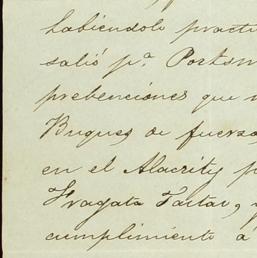 habiéndole pract
salió p.ª Portsm
prebenciónes que
Buques de fuersa
en el Alacrity p
Fragata Tartar,
cumplimiento á